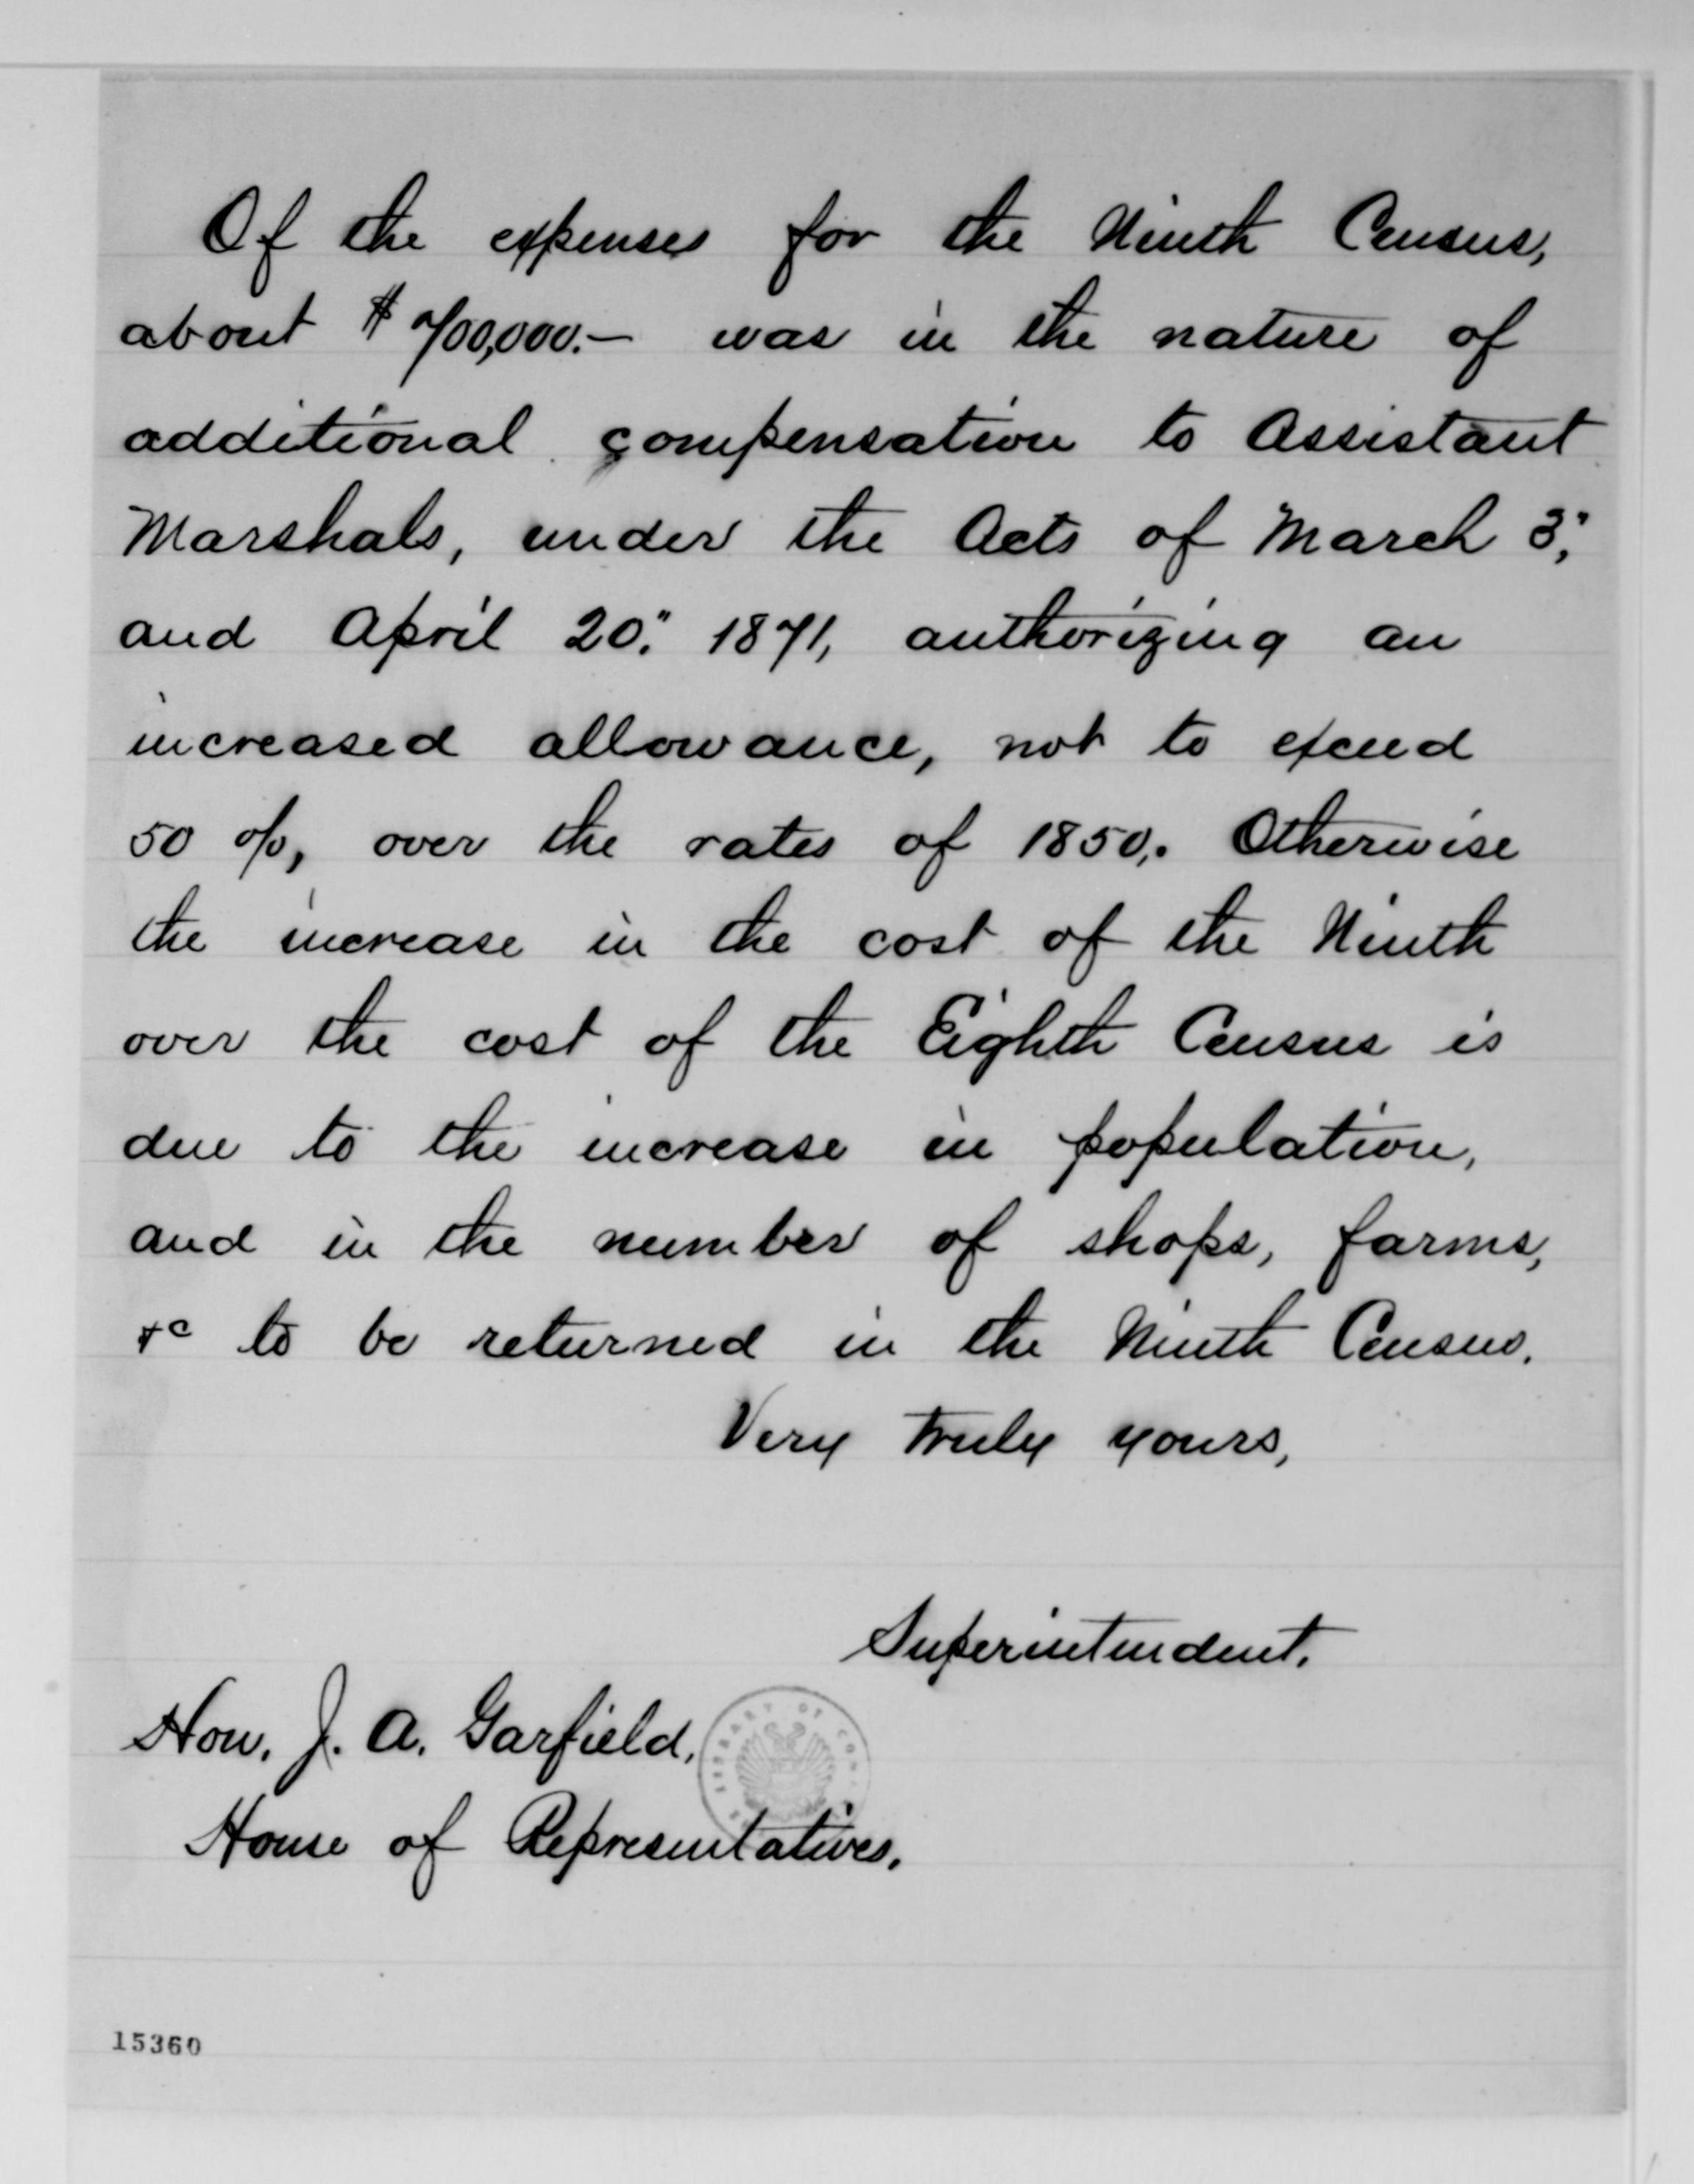 Of the expenses for the Ninth Census,
about $700,000.— was in the nature of
additional compensation to Assistant
Marshals, under the Acts of March 3,"
and April 20." 1871, authorizing an
increased allowance, not to exceed
50 %, over the rates of 1850,. Otherwise
the increase in the cost of the Ninth
over the cost of the Eighth Census is
due to the increase in population,
and in the number of shops, farms,
&c to be returned in the Ninth Census.
Very truly yours,
Superintendent.
Hon. J. A. Garfield,
House of Representatives.
15360